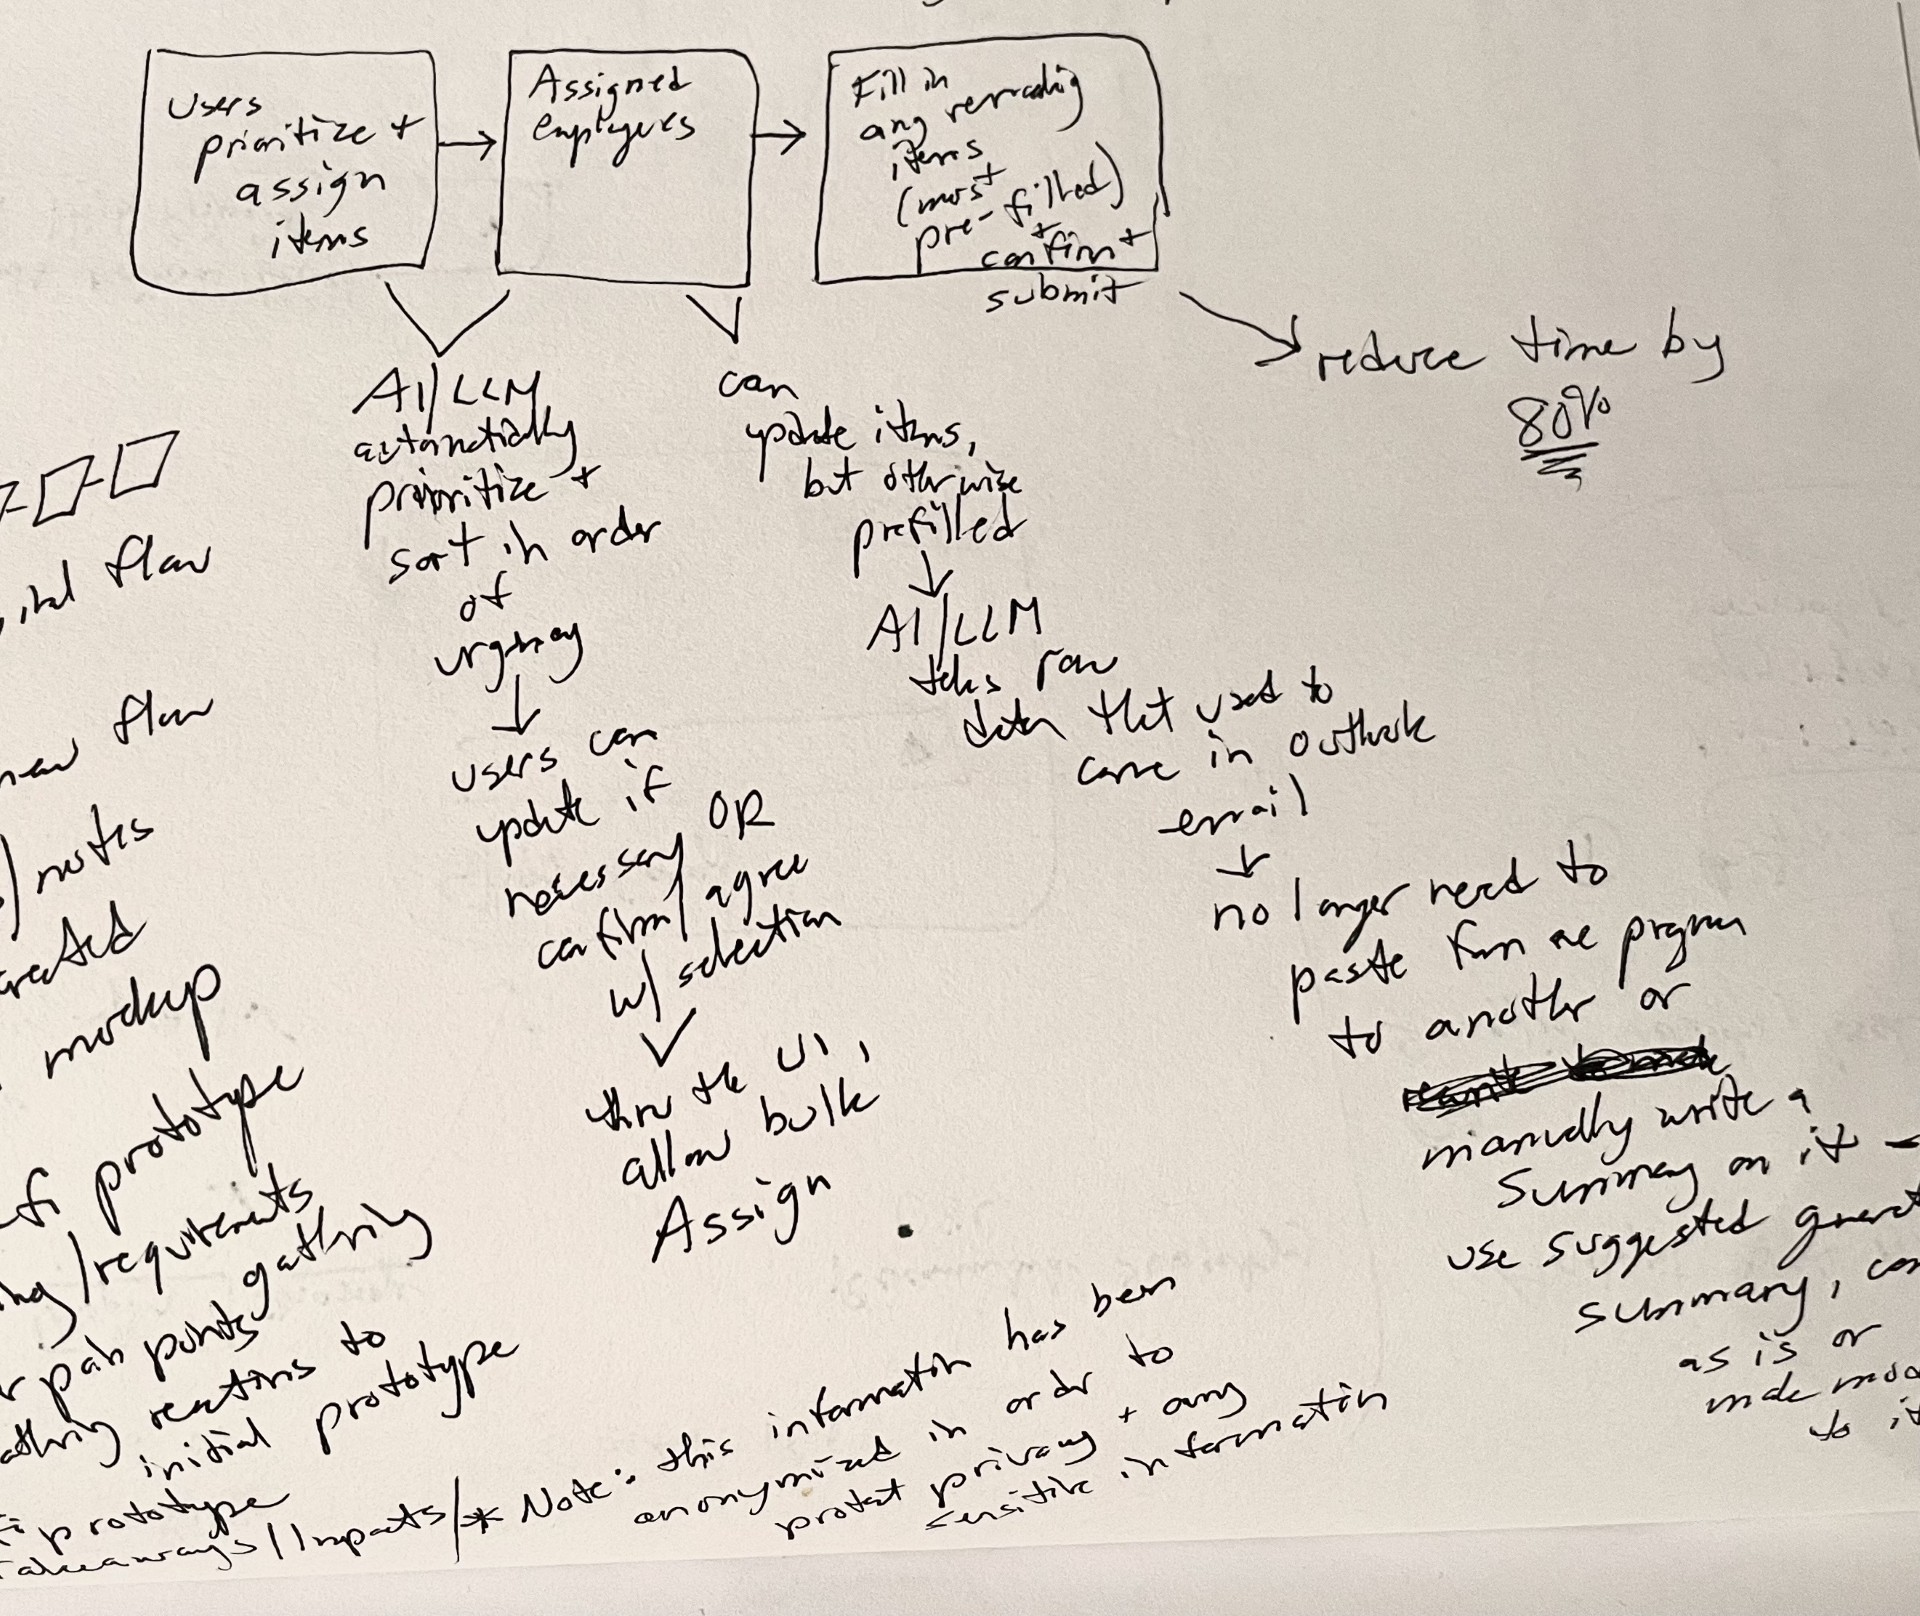 Users
prioritize +
assign
items
Assigned
employees
Fill in
any remaining
items
(most
pre-filled)
+
confirm +
submit
reduce time by
80%
AI/LLM
automatically
prioritize +
sort in order
of
urgency
users can
update if
necessary OR
confirm/agree
w/ selection
thru the UI,
allow bulk
Assign
can
update items,
but otherwise
prefilled
AI/LLM
takes raw
data that used to
come in outlook
email
no longer need to
paste from one program
to another or
manually write a
summary on it -
use suggested
summary,
as is or
make
to it
flow
new flow
notes
mockup
prototype
/requirements
gathering
pain points
reactions to
initial prototype
prototype
Takeaways/Impacts/* Note: this information has been
anonymized in order to
protect privacy + any
sensitive information